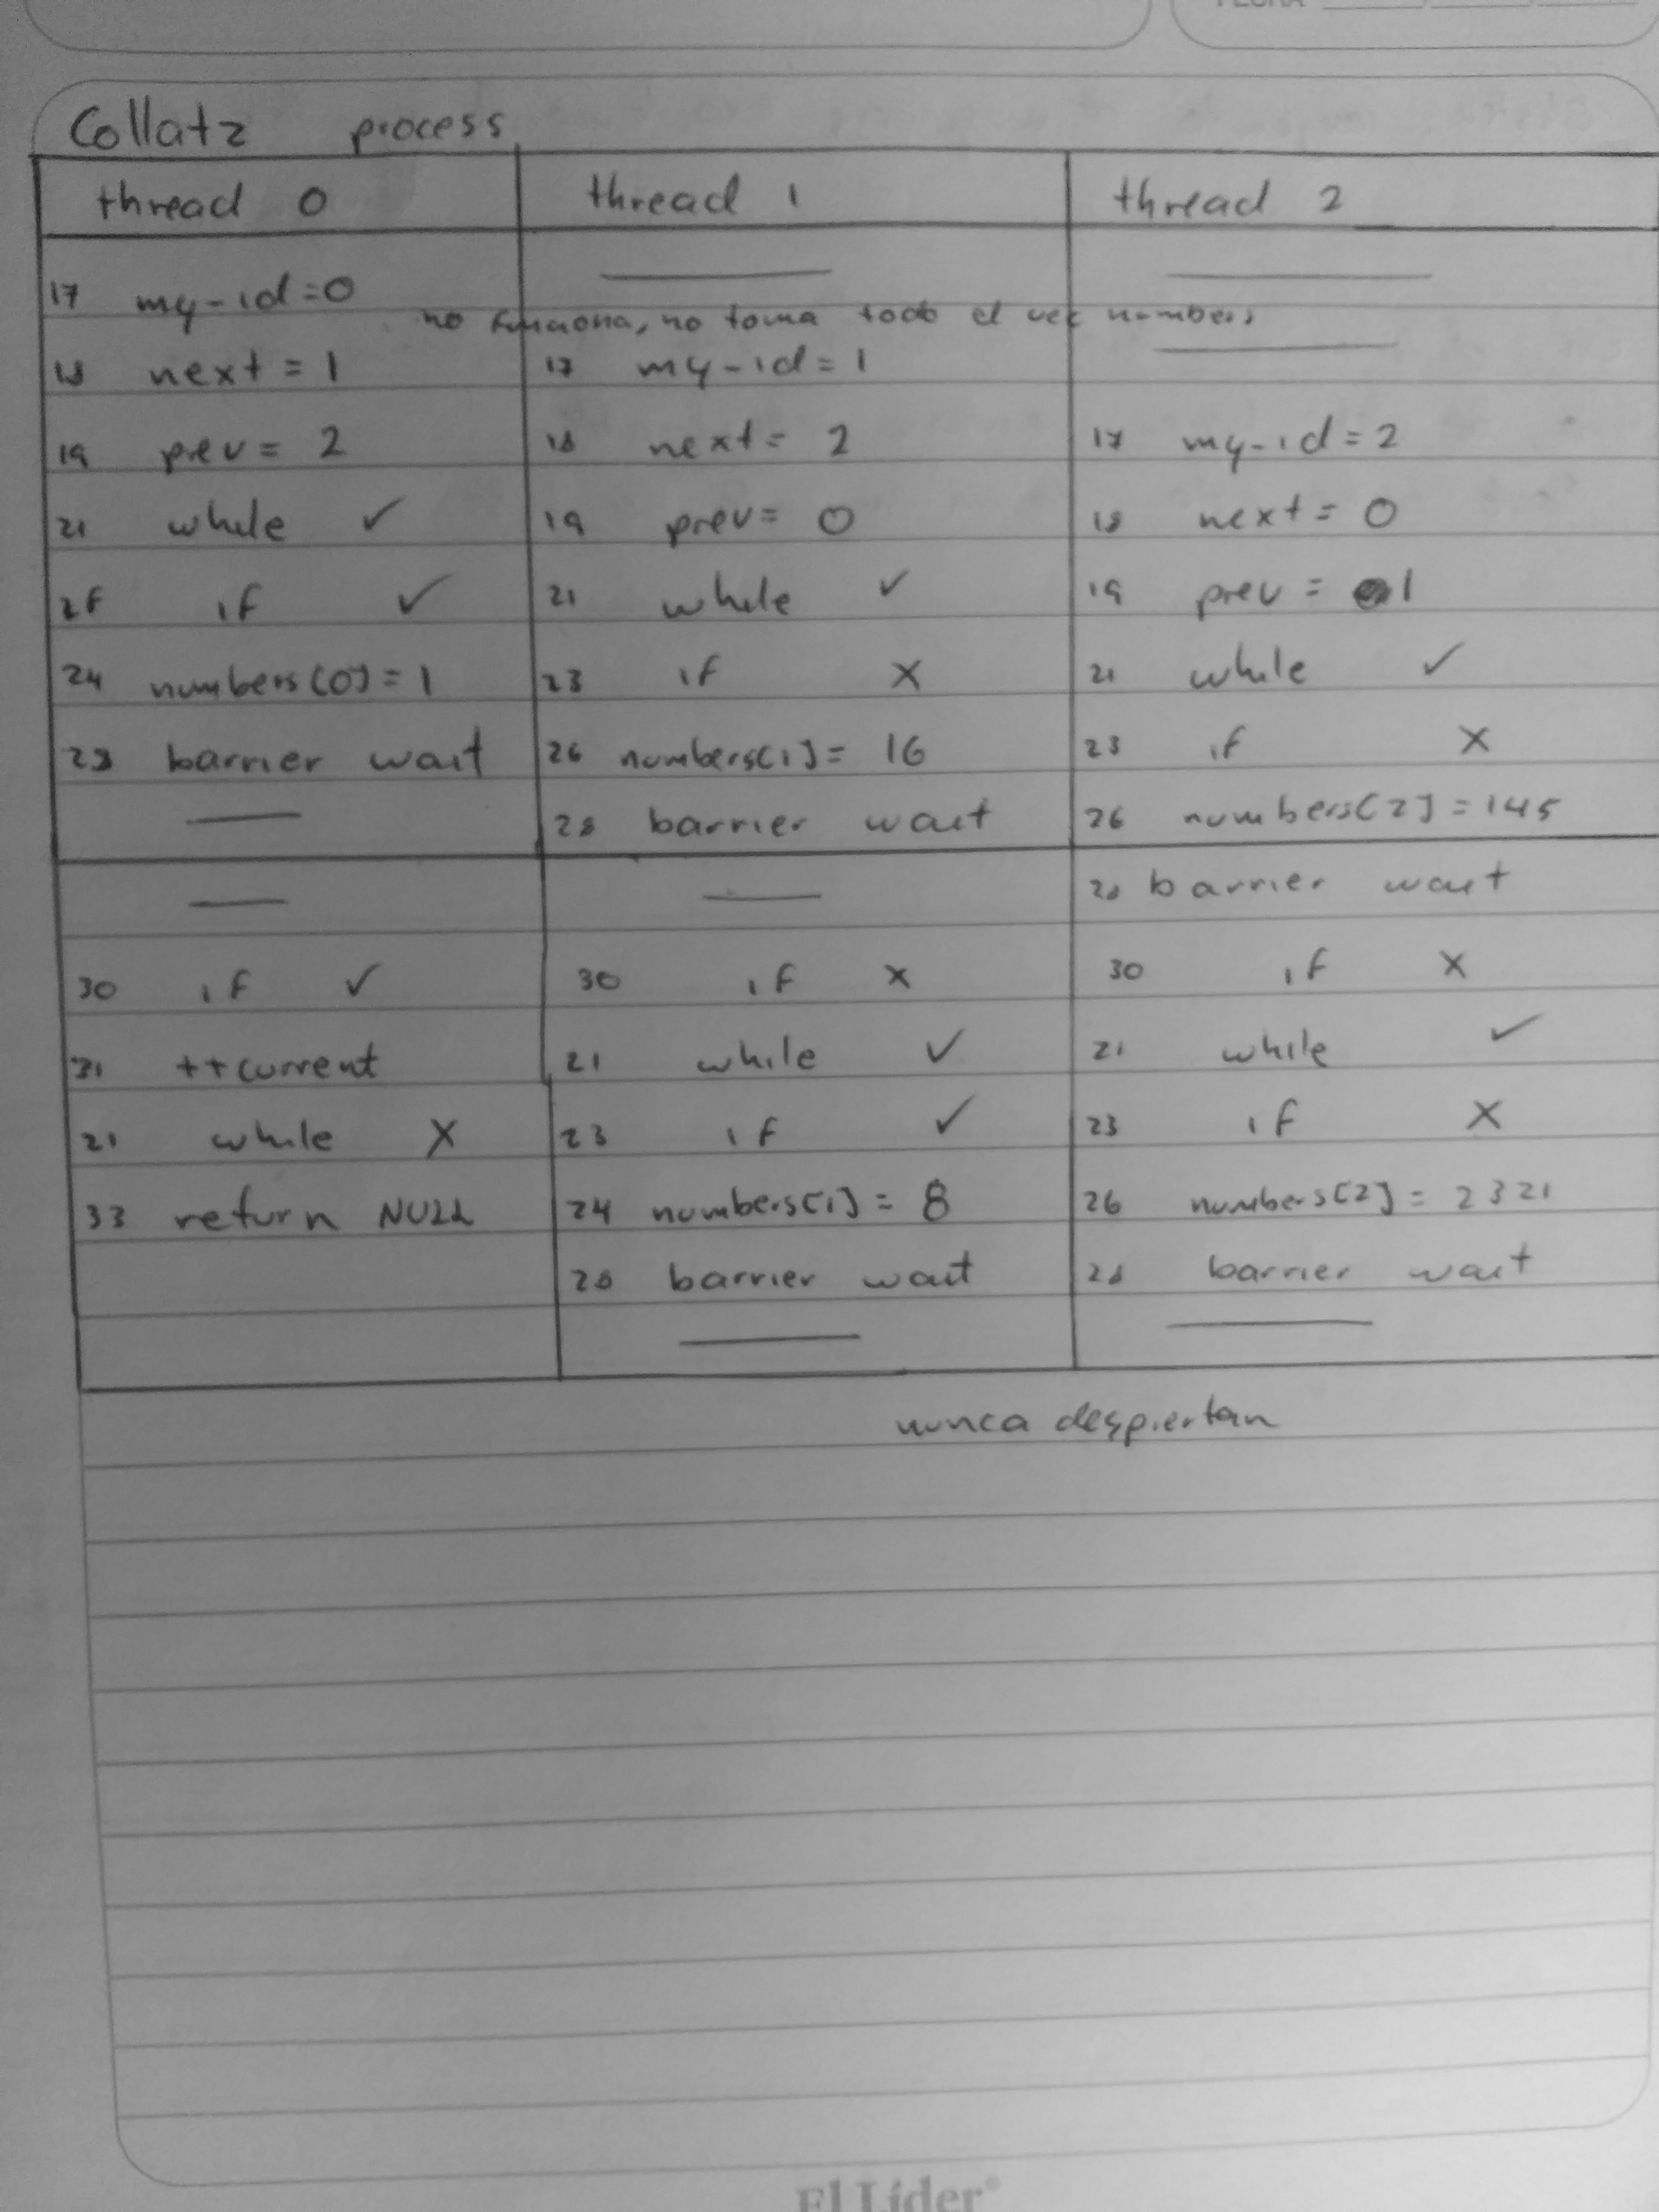 FECHA
Collatz process
thread 0 thread 1 thread 2
17 my-id=0
no funciona, no toma todo el vec numbers
18 next = 1 17 my-id = 1
19 prev = 2 18 next = 2 17 my-id = 2
21 while ✓ 19 prev = 0 18 next = 0
if ✓ 21 while ✓ 19 prev = 1
24 numbers[0] = 1 23 if x 21 while ✓
28 barrier wait 26 numbers[1] = 16 23 if x
28 barrier wait 26 numbers[2] = 145
28 barrier wait
30 if ✓ 30 if x 30 if x
31 ++current 21 while ✓ 21 while ✓
21 while x 23 if ✓ 23 if x
33 return NULL 24 numbers[1] = 8 26 numbers[2] = 2321
28 barrier wait 28 barrier wait
nunca despiertan
El Líder®